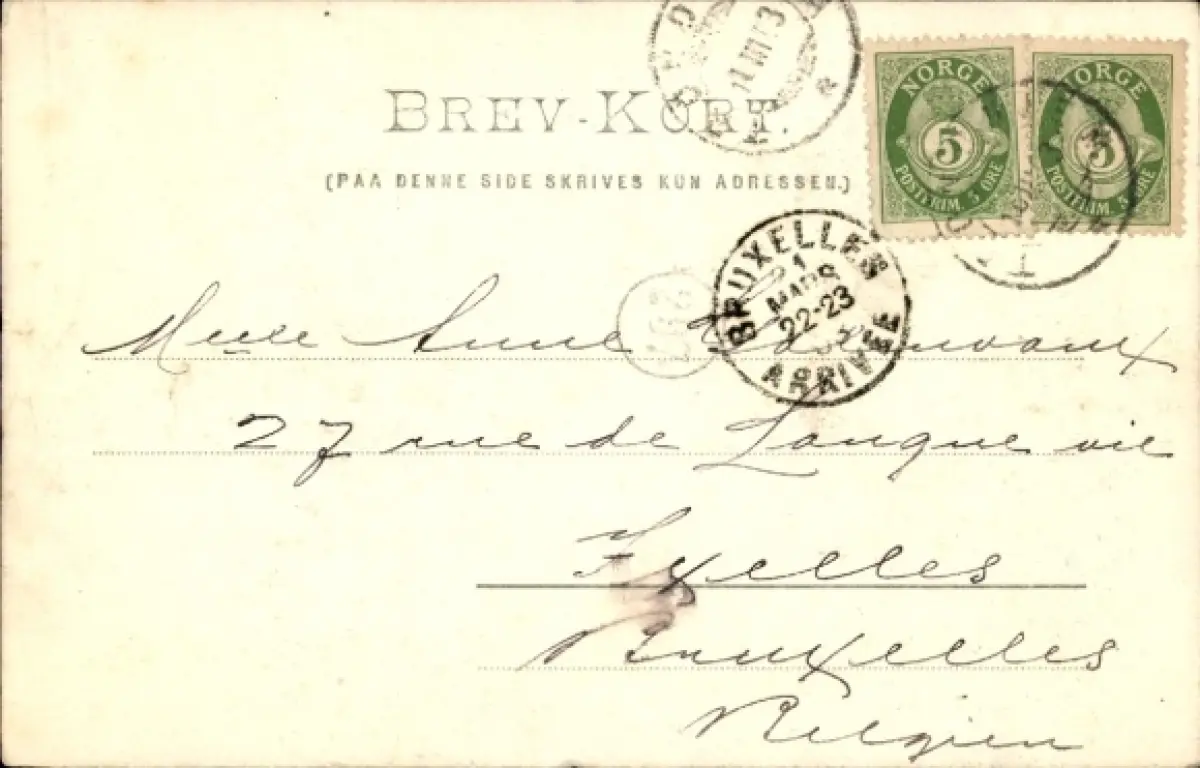 NORGE NORGE
5 5
POSTFRIM 5 ØRE POSTFRIM 5 ØRE
BREV-KORT.
(PAA DENNE SIDE SKRIVES KUN ADRESSEN.)
BRUXELLES
1
MARS
22-23
ARRIVEE
Melle Anne
27 rue de Longue vie
Ixelles
Bruxelles
Belgien